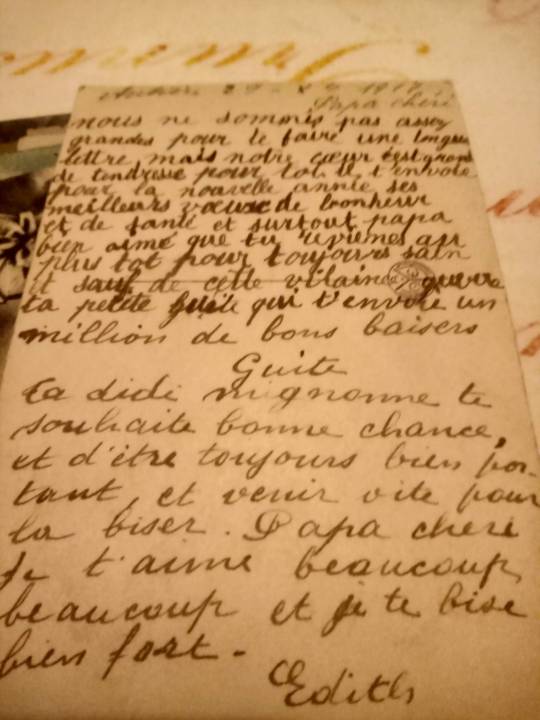 Papa chéri
nous ne sommes pas assez
grandes pour te faire une longue
lettre, mais notre cœur est grand
de tendresse pour toi il t'envoie
pour la nouvelle année ses
meilleurs vœux de bonheur
et de santé et surtout papa
bien aimé que tu reviennes au
plus tot pour toujours sain
et sauf de cette vilaine guerre
ta petite guite qui t'envoie un
million de bons baisers
Guite
Ta didi mignonne te
souhaite bonne chance,
et d'être toujours bien por-
tant, et venir vite pour
la biser. Papa cheri
Je t'aime beaucoup,
beaucoup et je te bise
bien fort.
Edith